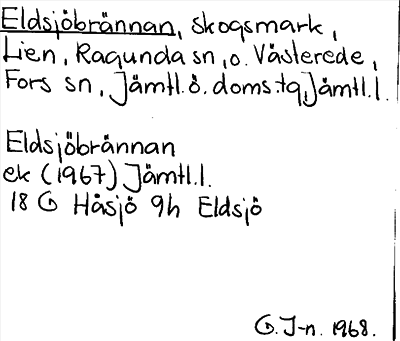 Eldsjöbrännan, skogsmark,
Lien, Ragunda sn, o. Västerede,
Fors sn, Jämtl.ö. doms.tg, Jämtl.l.
Eldsjöbrännan
ek (1967) Jämtl.l.
18 G Håsjö 9h Eldsjö
G. J-n. 1968.